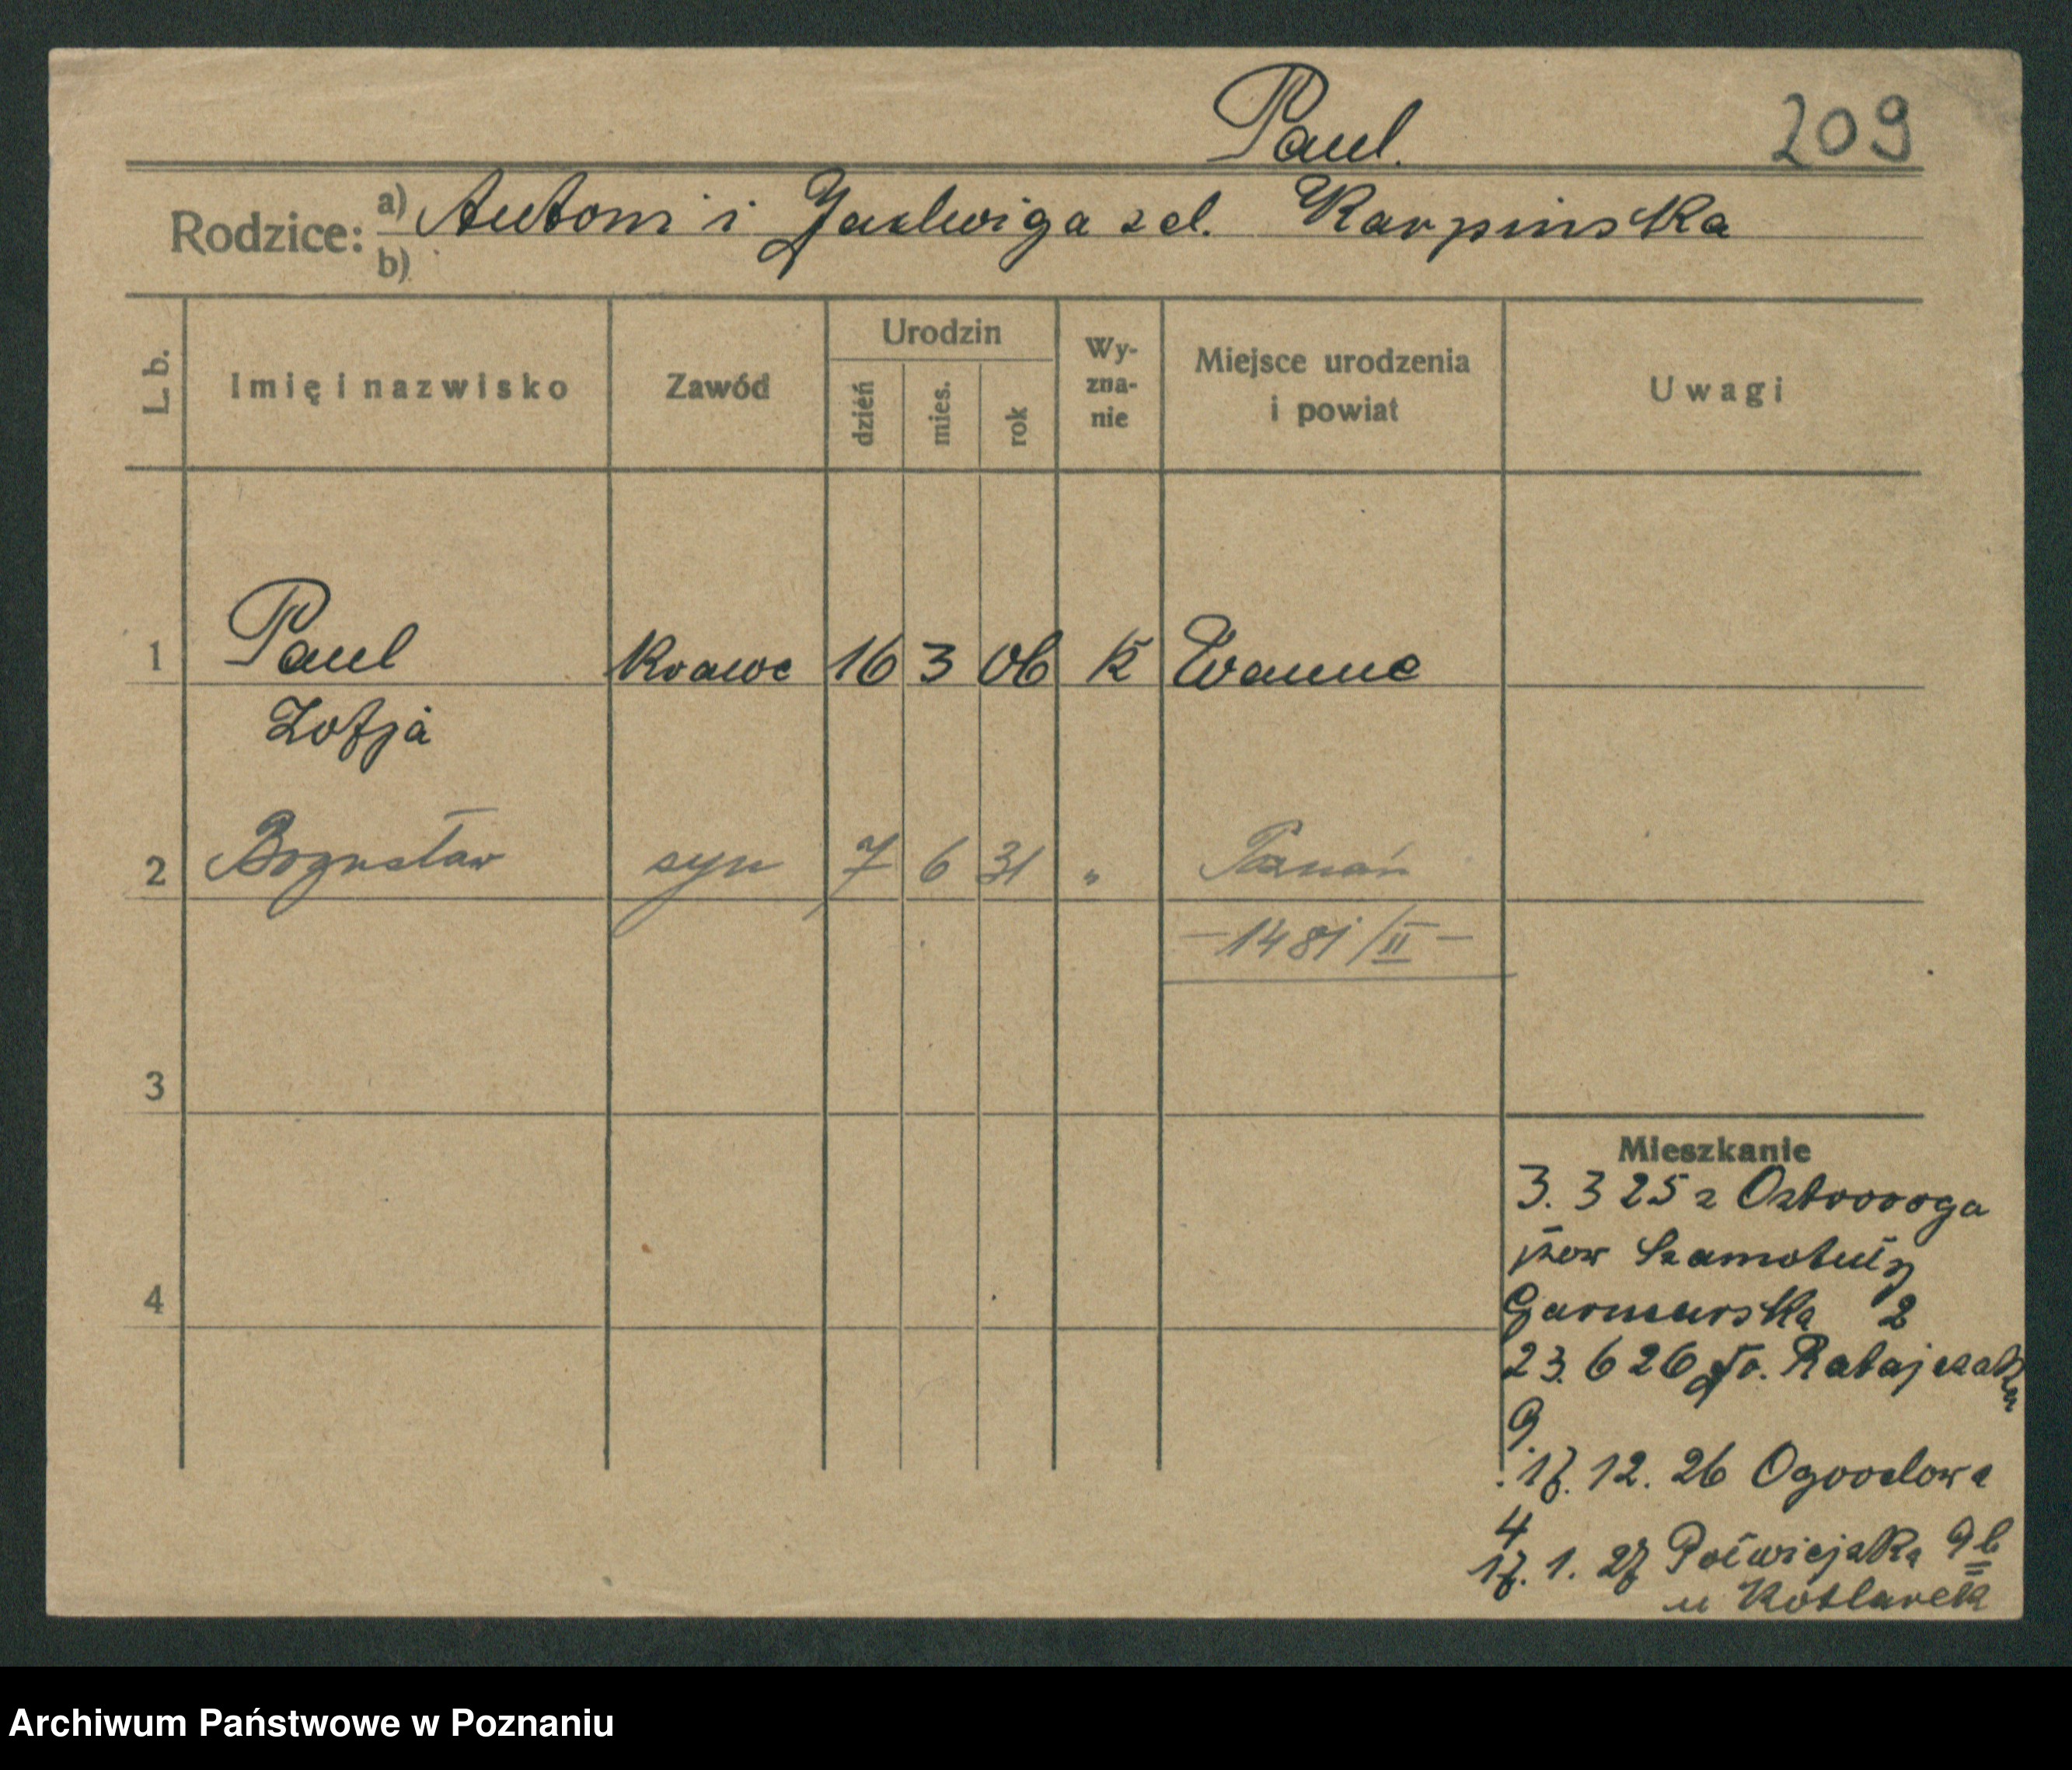 Paul. 209
Rodzice: a) Antoni i Jadwiga zd. Karpinska
b)
L. b. Imię i nazwisko Zawód Urodzin dzień mies. rok Wy-zna-nie Miejsce urodzenia i powiat Uwagi
1 Paul Krawc 16 3 06 K Wanne
Zofja
2 Bogusław syn 7 6 31 " Poznań
- 1481/II -
3
4
Mieszkanie
3. 3 25 z Ostroroga
pow Szamotuły
Garncarska 2
23. 6 26 Fr. Ratajczaka
9.
17. 12. 26 Ogrodowa
4
17. 1. 27 Półwiejska 9b
u Kotlarek
Archiwum Państwowe w Poznaniu